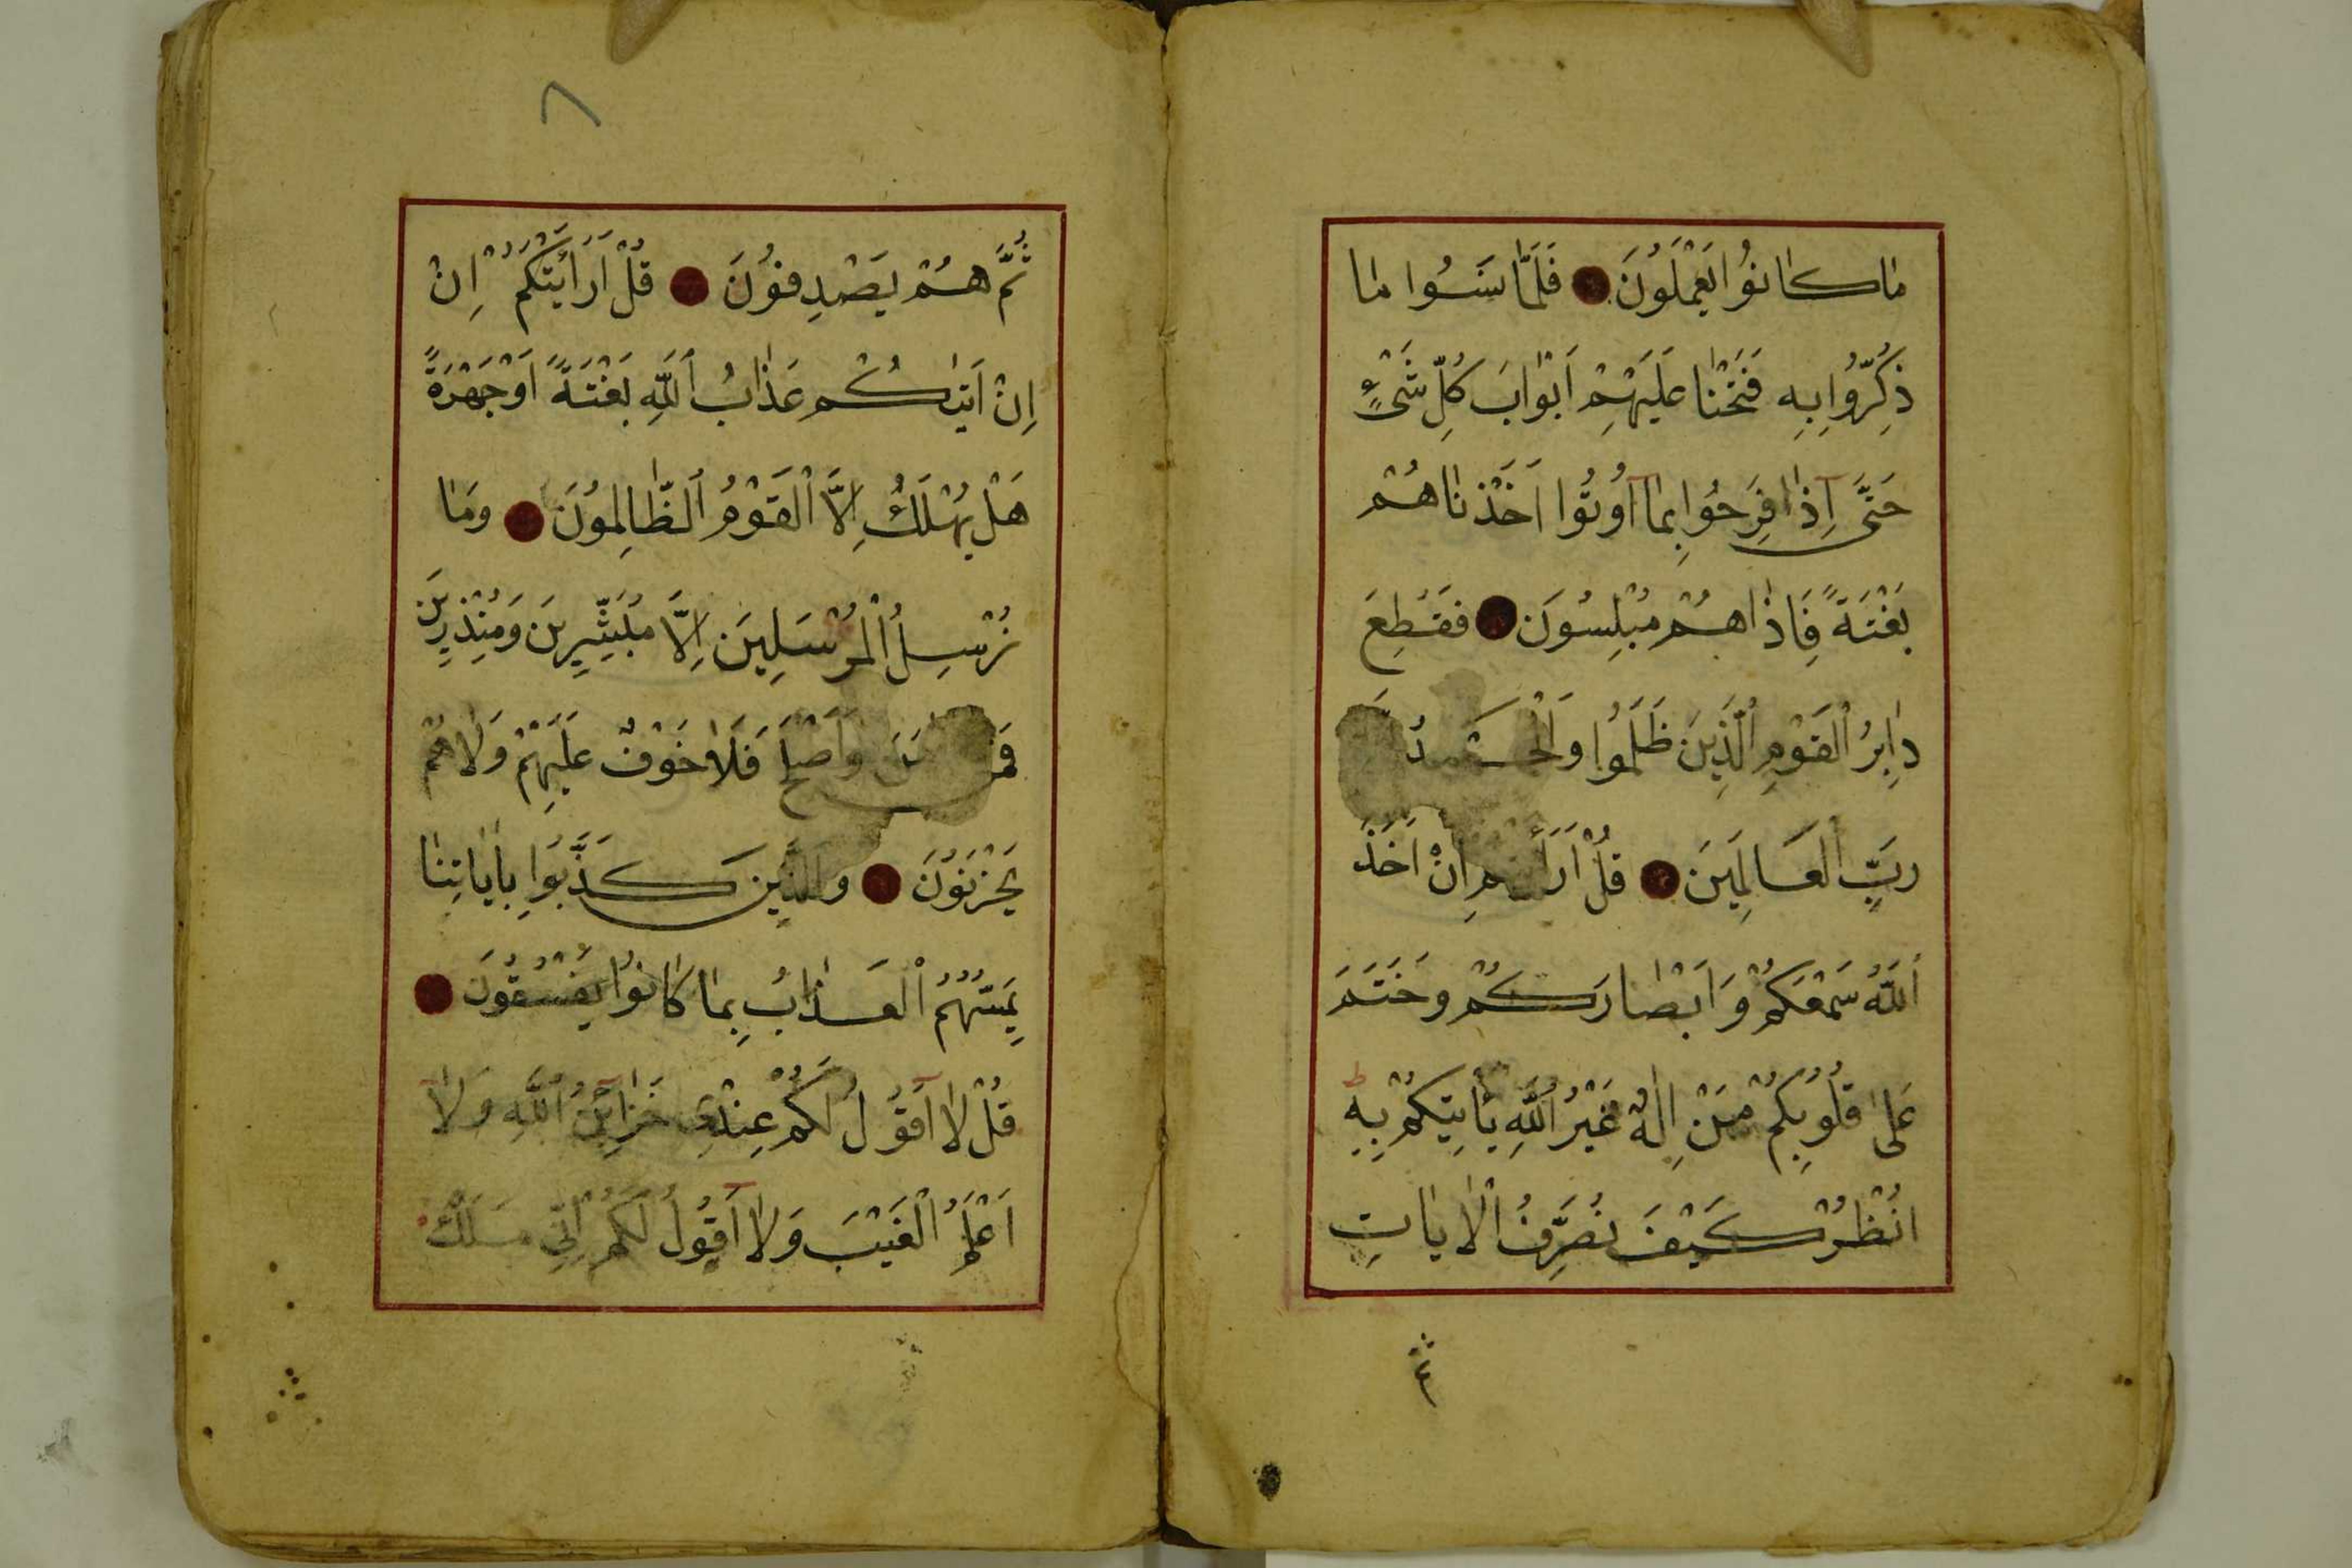 مٰا كٰانُوا يَعْمَلُونَ فَلَمّٰا نَسُوا مٰا
ذُكِّرُوا بِهِ فَتَحْنٰا عَلَيْهِمْ اَبْوٰابَ كُلِّ شَىْءٍ
حَتَّى اِذٰا فَرِحُوا بِمٰا اُوتُوا اَخَذْنٰاهُمْ
بَغْتَةً فَاِذٰا هُمْ مُبْلِسُونَ فَقُطِعَ
دٰابِرُ الْقَوْمِ الَّذِينَ ظَلَمُوا وَالْحَمْدُ
رَبِّ الْعَالَمِينَ قُلْ اَرَاَيْتُمْ اِنْ اَخَذَ
اللّٰهُ سَمْعَكُمْ وَاَبْصٰارَكُمْ وَخَتَمَ
عَلىٰ قُلُوبِكُمْ مَنْ اِلٰهٌ غَيْرُ اللّٰهِ يَأْتِيكُمْ بِهِ
اُنْظُرْ كَيْفَ نُصَرِّفُ الْاٰيٰاتِ
ثُمَّ هُمْ يَصْدِفُونَ قُلْ اَرَاَيْتَكُمْ اِنْ
اِنْ اَتٰيكُمْ عَذٰابُ اللّٰهِ بَغْتَةً اَوْ جَهْرَةً
هَلْ يُهْلَكُ اِلَّا الْقَوْمُ الظّٰالِمُونَ وَمٰا
نُرْسِلُ الْمُرْسَلِينَ اِلَّا مُبَشِّرِينَ وَمُنْذِرِينَ
فَمَنْ وَاَصْلَحَ فَلٰا خَوْفٌ عَلَيْهِمْ وَلٰا هُمْ
يَحْزَنُونَ وَالَّذِينَ كَذَّبُوا بِاٰيٰاتِنٰا
يَمَسُّهُمُ الْعَذٰابُ بِمٰا كٰانُوا يَفْسُقُونَ
قُلْ لٰا اَقُولُ لَكُمْ عِنْدِى خَزٰائِنُ اللّٰهِ وَلٰا
اَعْلَمُ الْغَيْبَ وَلٰا اَقُولُ لَكُمْ اِنِّى مَلَكٌ